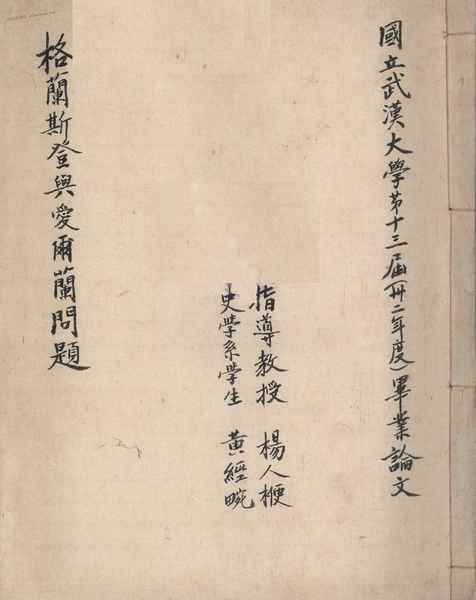 國立武漢大學第十三屆(卅二年度)畢業論文
指導教授 楊人楩
史學系學生 黃經畹
格蘭斯登與愛爾蘭問題